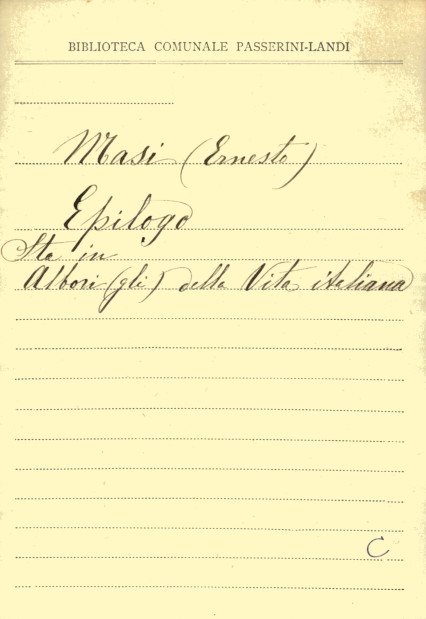 BIBLIOTECA COMUNALE PASSERINI-LANDI
Masi (Ernesto)
Epilogo
Sta in
Albori (gli) della Vita italiana
C